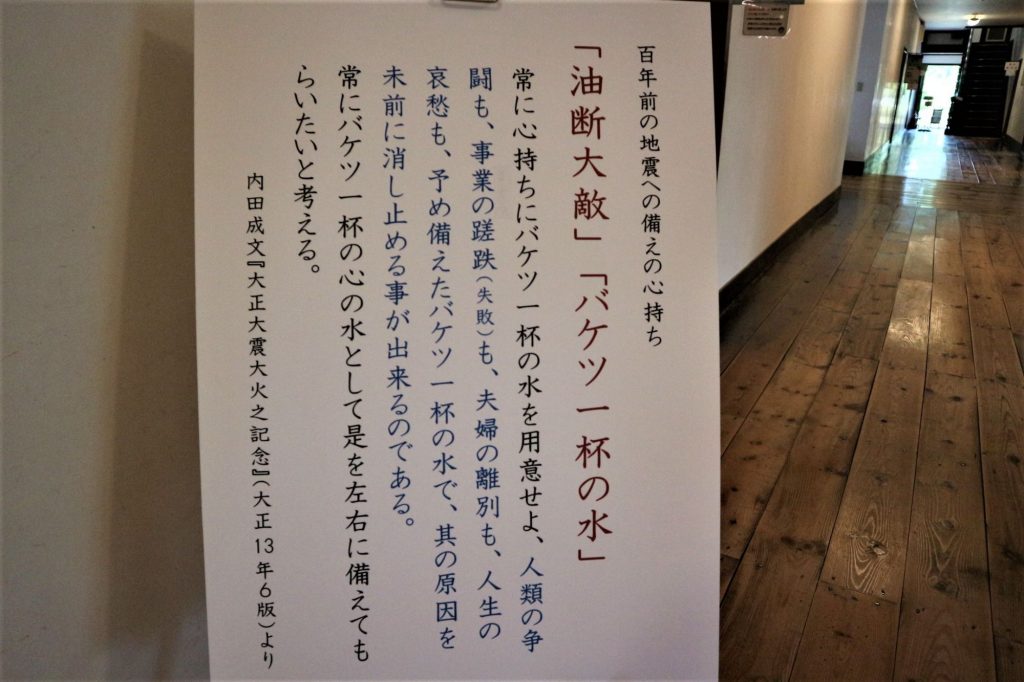 百年前の地震への備えの心持ち
「油断大敵」「バケツ一杯の水」
常に心持ちにバケツ一杯の水を用意せよ、人類の争
闘も、事業の蹉跌(失敗)も、夫婦の離別も、人生の
哀愁も、予め備えたバケツ一杯の水で、其の原因を
未前に消し止める事が出来るのである。
常にバケツ一杯の心の水として是を左右に備えても
らいたいと考える。
内田成文『大正大震大火之記念』(大正13年6版)より